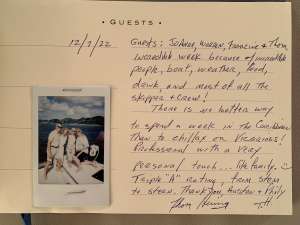 • GUESTS •
12/7/22
Guests: JoAnne, Warren, Francine & Thom,
Incredible week because of incredible
people, boat, weather, food,
drink, and most of all the
skipper & crew!
There is no better way
to spend a week in the Caribbean
than to chillax on Vicarious!
Professional with a very
personal touch... like family.
Triple "A" rating from stem
to stern. Thank you, Houston & Phily
Thom